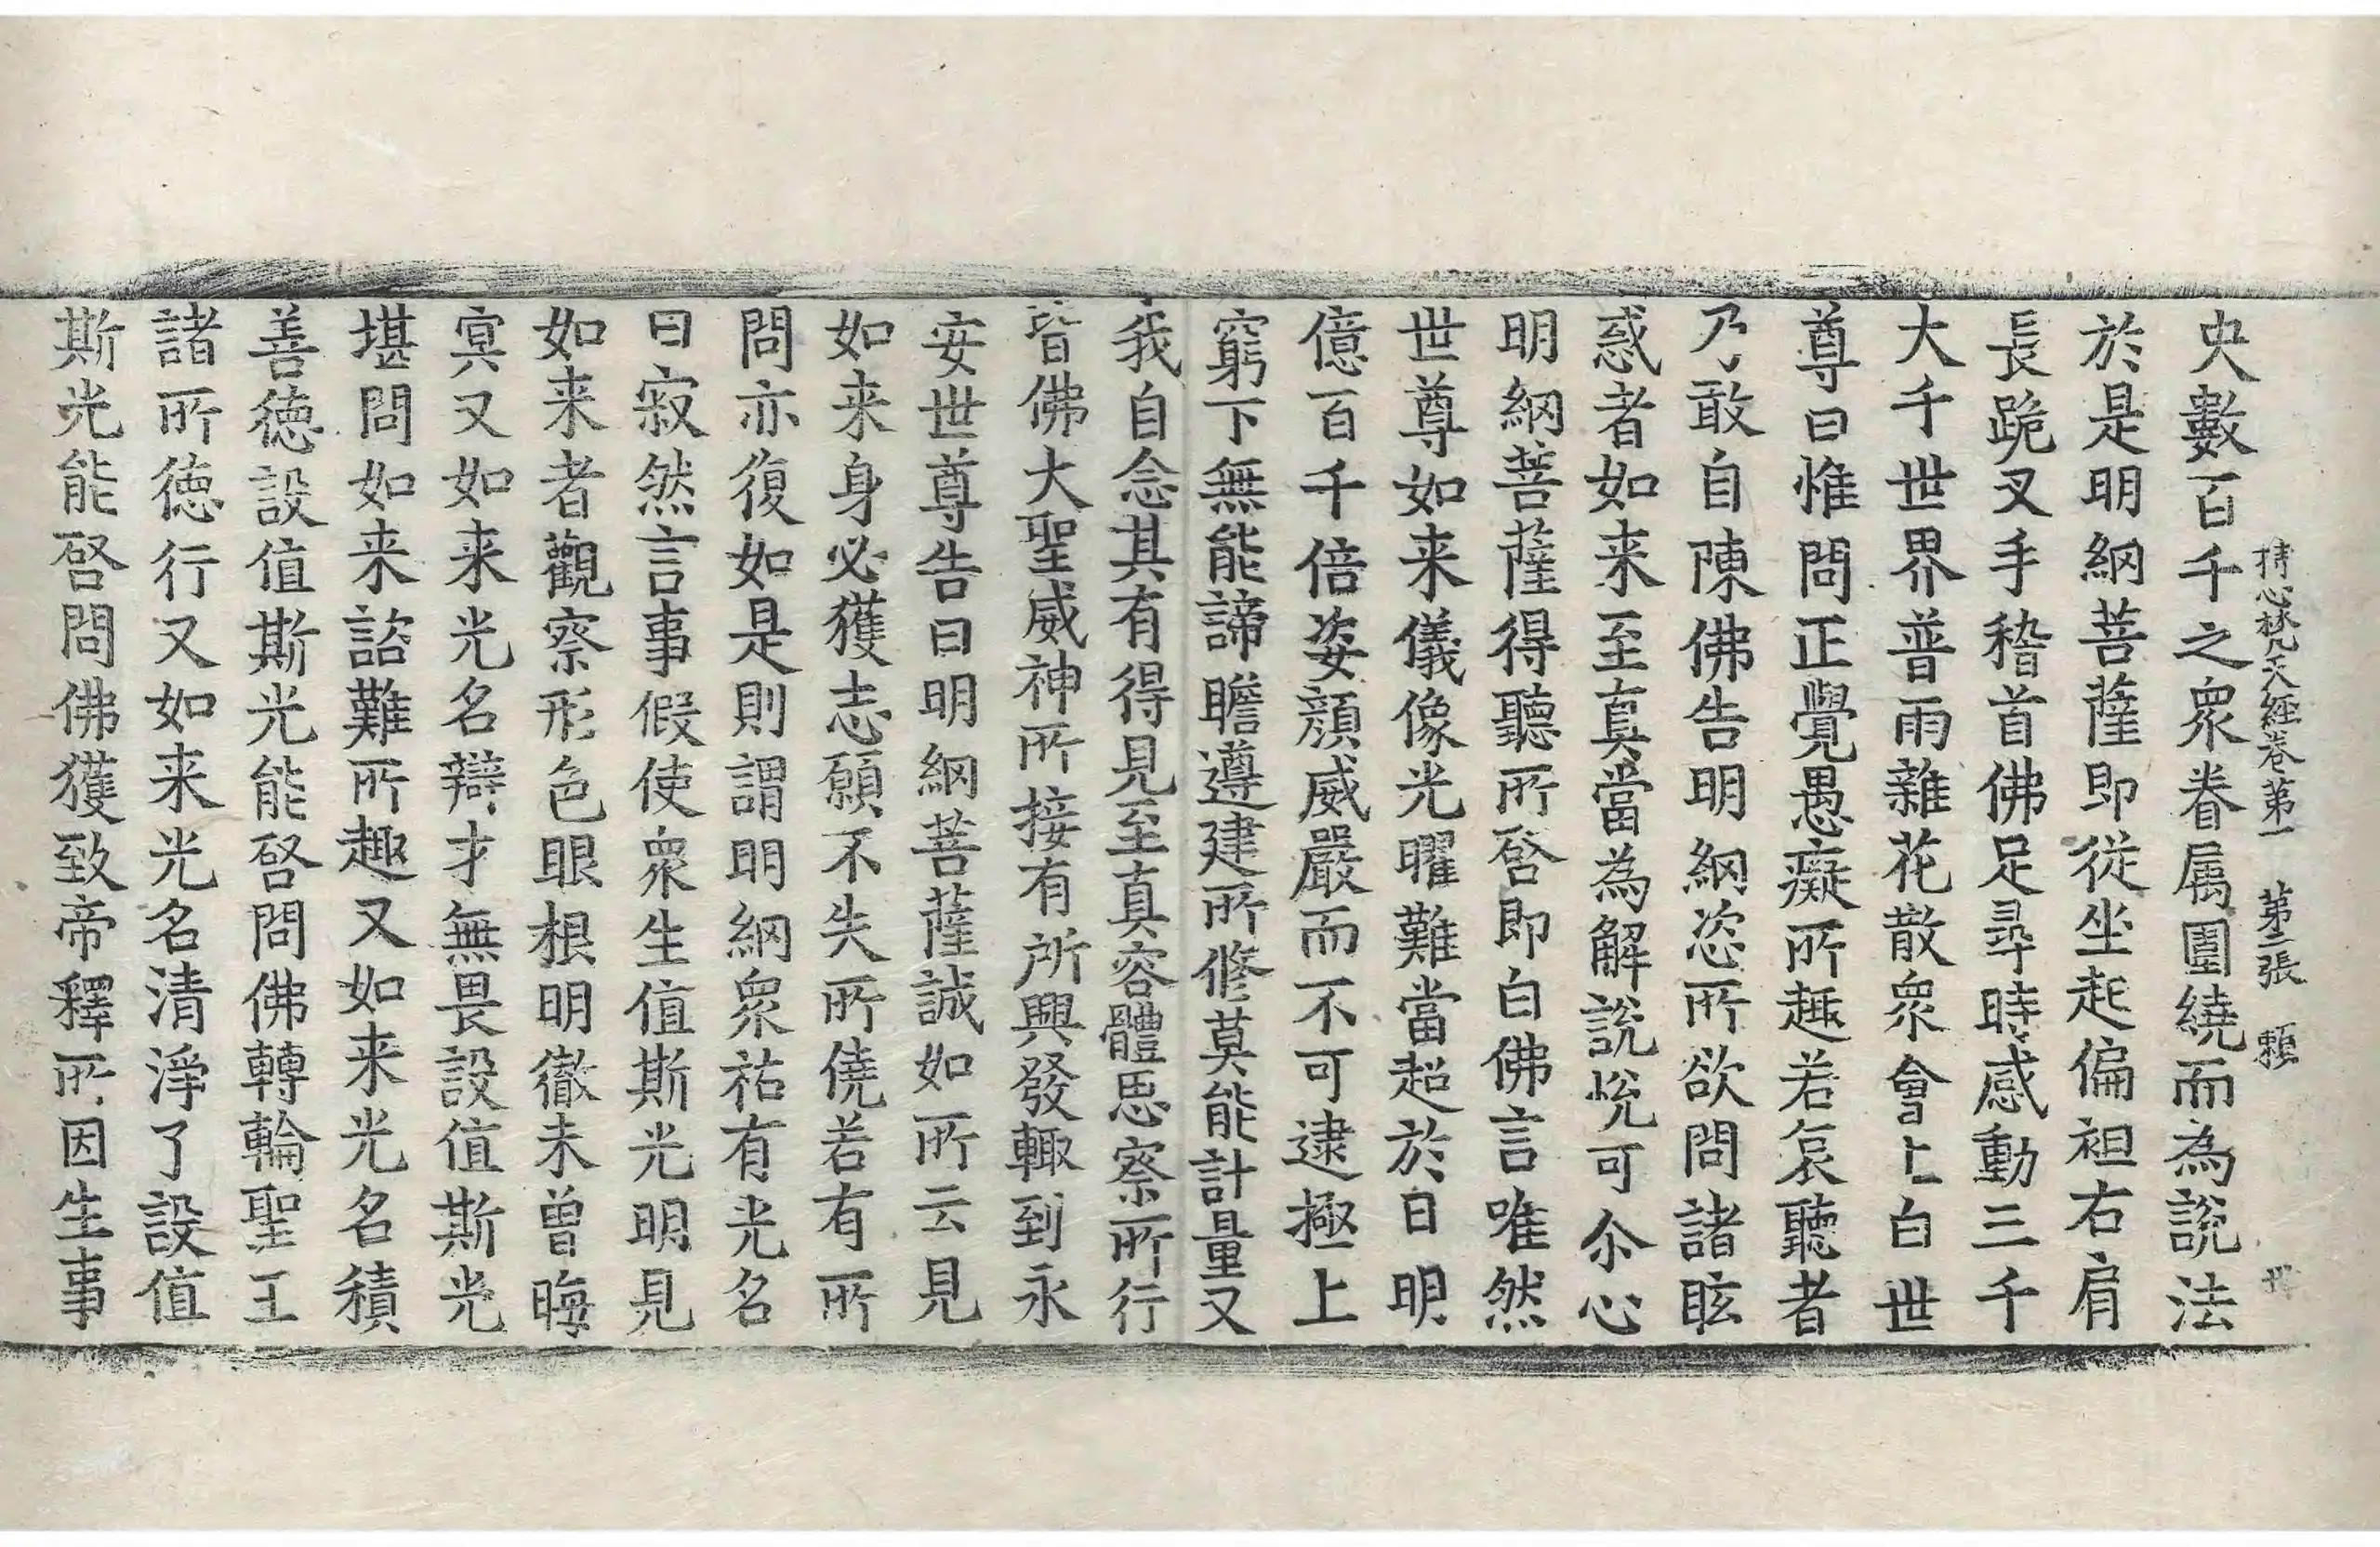 持心梵天經卷第一　第二張　頼
央數百千之眾眷属圍繞而為說法
於是明網菩薩即從坐起偏袒右肩
長跪叉手稽首佛足尋時感動三千
大千世界普雨雜花散眾會上白世
尊曰惟問正覺愚癡所趣若哀聽者
乃敢自陳佛告明網恣所欲問諸眩
惑者如来至真當為解說恱可尒心
明網菩薩得聽所啓即白佛言唯然
世尊如来儀像光曜難當超於日明
億百千倍姿顔威嚴而不可逮極上
窮下無能諦瞻遵建所修莫能計量又
我自念其有得見至真容體思察所行
皆佛大聖威神所接有所興發輙到永
安世尊告曰明網菩薩誠如所云見
如来身必獲志願不失所僥若有所
問亦復如是則謂明網眾祐有光名
曰寂然言事假使眾生值斯光明見
如来者觀察形色眼根明徹未曾晦
冥又如来光名辯才無畏設值斯光
堪問如来諮難所趣又如来光名積
善徳設值斯光能啓問佛轉輪聖王
諸所徳行又如来光名清淨了設值
斯光能啓問佛獲致帝釋所因生事